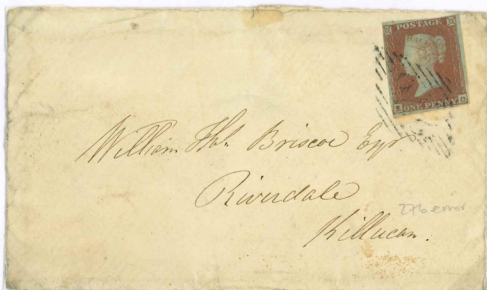 POSTAGE
ONE PENNY
William Tho.s Briscoe Esqr
Riverdale
276 error
Killucan.